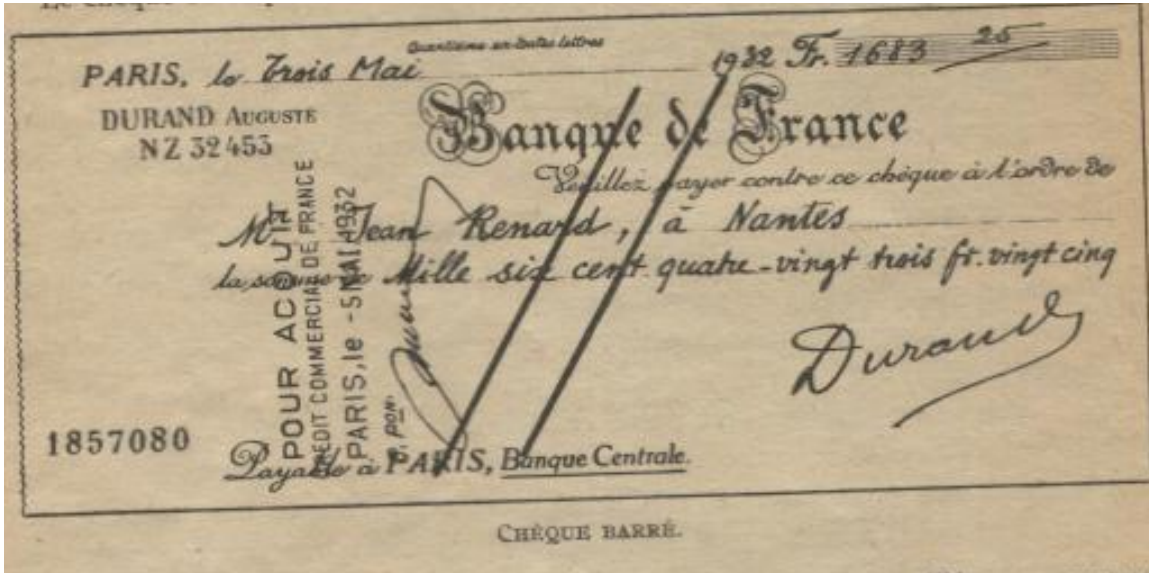 Quantième en toutes lettres
PARIS, le Trois Mai 1932 Fr. 1683 25
DURAND AUGUSTE
NZ 32453
Banque de France
Veuillez payer contre ce chèque à l'ordre de
Mr Jean Renard, à Nantes
la somme de Mille six cent quatre-vingt trois fr. vingt cinq
POUR ACQUIT
CREDIT COMMERCIAL DE FRANCE
PARIS, le -5 MAI 1932
P. PON:
Durand
1857080
Payable à PARIS, Banque Centrale.
CHÈQUE BARRÉ.